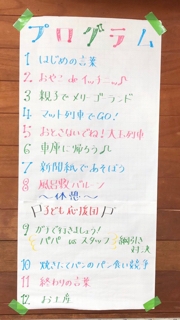 プログラム
1 はじめの言葉
2 おやこ de イェーイ♪
3 親子でメリーゴーランド
4 マット列車でGO!
5 おとさないでね!大玉列車
6 車庫に帰ろう♪
7 新聞紙であそぼう
8 風呂敷バルーン
〜休憩〜
子ども応援団
9 ガチで行きましょう!
パパ vs スタッフ 綱引き対決
10 焼きたてパンのパン食い競争
11 終わりの言葉
12 お土産